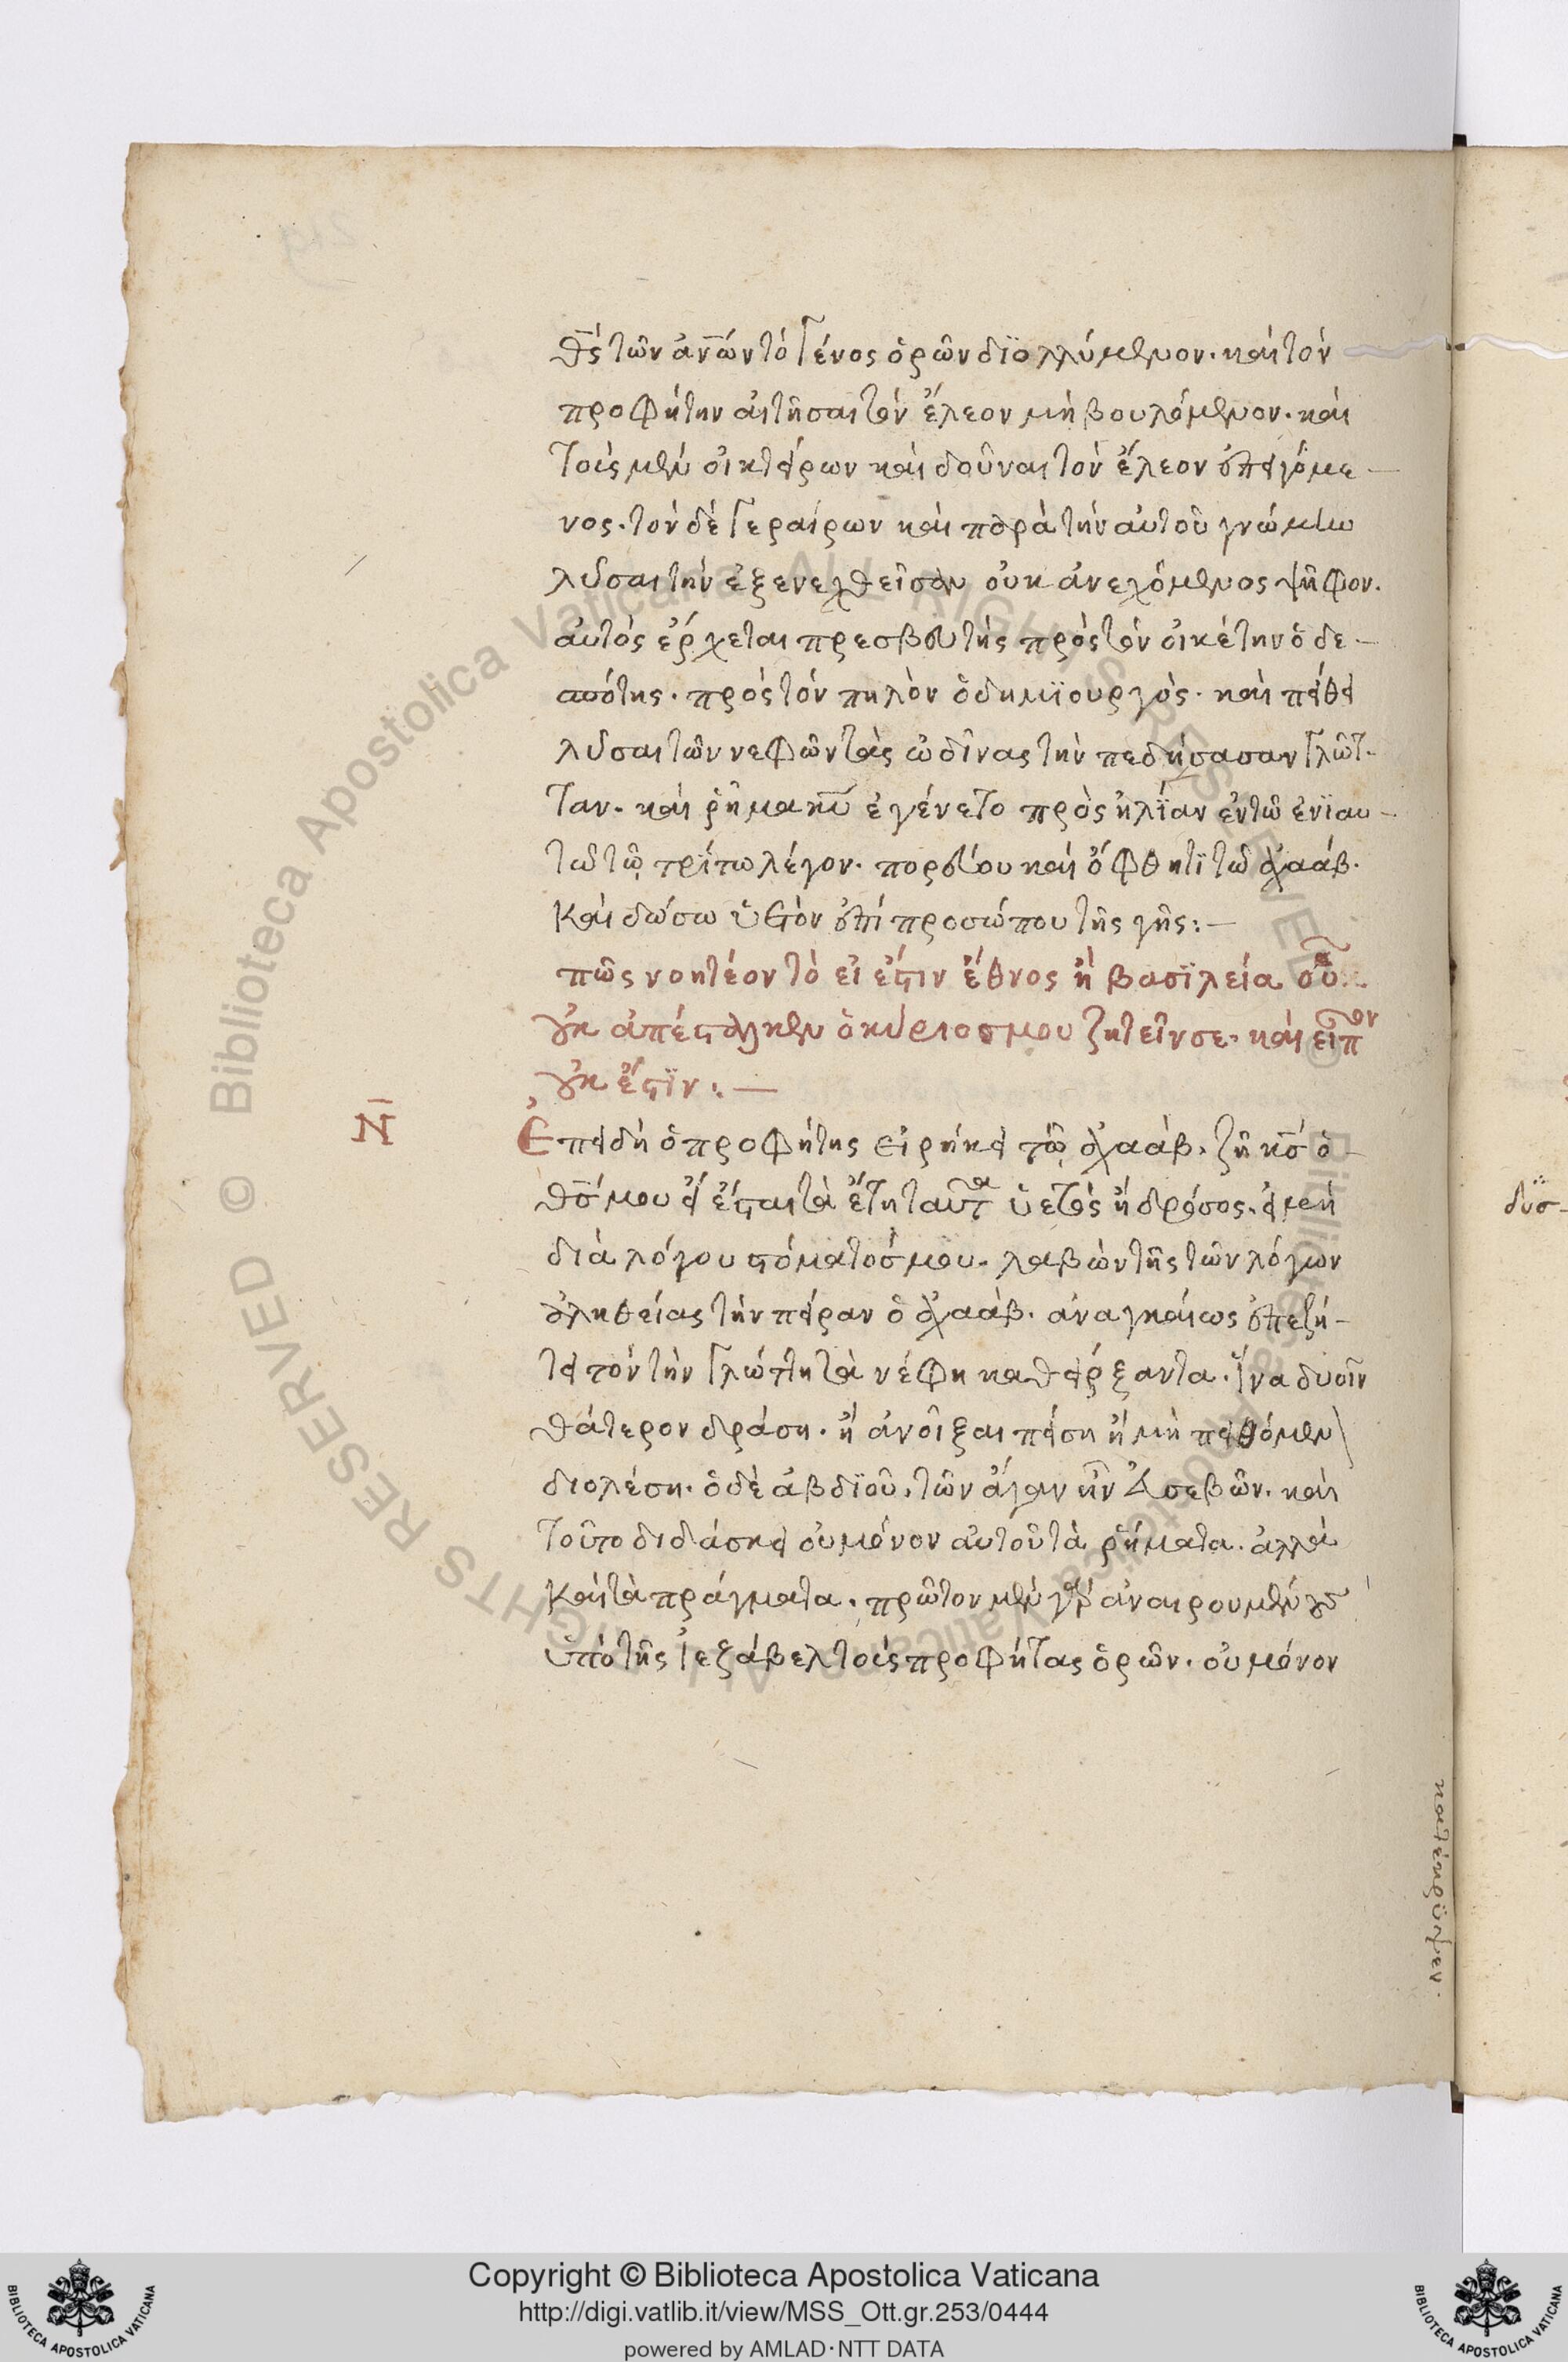 θ̅ς̅ τῶν ἀν̅ων τὸ γένος ὁρῶν διολλύμενον. καὶ τὸν
προφήτην αἰτῆσαι τὸν ἔλεον μὴ βουλόμενον. καὶ
τοὺς μὲν οἰκτείρων καὶ δοῦναι τὸν ἔλεον ἐπειγόμε-
νος. τὸν δὲ γεραίρων καὶ παρὰ τὴν αὐτοῦ γνώμην
λῦσαι τὴν ἐξενεχθεῖσαν οὐκ ἀνεχόμενος ψῆφον.
αὐτὸς ἔρχεται πρεσβευτὴς πρὸς τὸν οἰκέτην ὁ δε-
σπότης. πρὸς τὸν πηλὸν ὁ δημϊουργὸς. καὶ πείθει
λῦσαι τῶν νεφῶν τὰς ὠδῖνας τὴν πεδήσασαν γλῶτ-
ταν. καὶ ῥῆμα κ̅υ̅ ἐγένετο πρὸς ἠλίαν ἐν τῶ ἐνϊαυ-
τῶ τῶ τρίτω λέγον. πορεύου καὶ ὄφθητϊ τῶ ἀχαάβ.
Καὶ δώσω ὑετὸν ἐπὶ προσώπου τῆς γῆς:—
πῶς νοητέον τὸ εἰ ἔστιν ἔθνος ἢ βασϊλεία οὗ
οὐκ ἀπέσταλκεν ὁ κύριος μου ζητεῖν σε. καὶ εἶπον
οὐκ ἔστϊν:—
Ν̅
Ἐπειδὴ ὁ προφήτης εἰρήκει τῶ ἀχαάβ. ζῆ κ̅ς̅ ὁ
θ̅ς̅ μου εἰ ἔσται τὰ ἔτη ταῦτα ὑετὸς ἢ δρόσος. εἰ μὴ
διὰ λόγου στόματός μου. λαβὼν τῆς τῶν λόγων
ἀληθείας τὴν πείραν ὁ ἀχαάβ. ἀναγκαίως ἐπεζή-
τει τὸν τὴν γλώττη τὰ νέφη καθείρξαντα. ἵνα δυοῖν
θάτερον δράση. ἢ ἀνοῖξαι πείση ἢ μὴ πειθόμενον
διολέση. ὁ δὲ ἀβδϊοῦ. τῶν ἄγαν ἦν εὐσεβῶν. καὶ
τοῦτο διδάσκει οὐ μόνον αὐτοῦ τὰ ῥήματα. ἀλλὰ
Καὶ τὰ πράγματα. πρῶτον μὲν γὰρ ἀναιρουμένους
ὑπὸ τῆς ἰεζάβελ τοὺς προφήτας ὁρῶν. οὐ μόνον
κατέκρϋψεν.
Copyright © Biblioteca Apostolica Vaticana
http://digi.vatlib.it/view/MSS_Ott.gr.253/0444
powered by AMLAD·NTT DATA